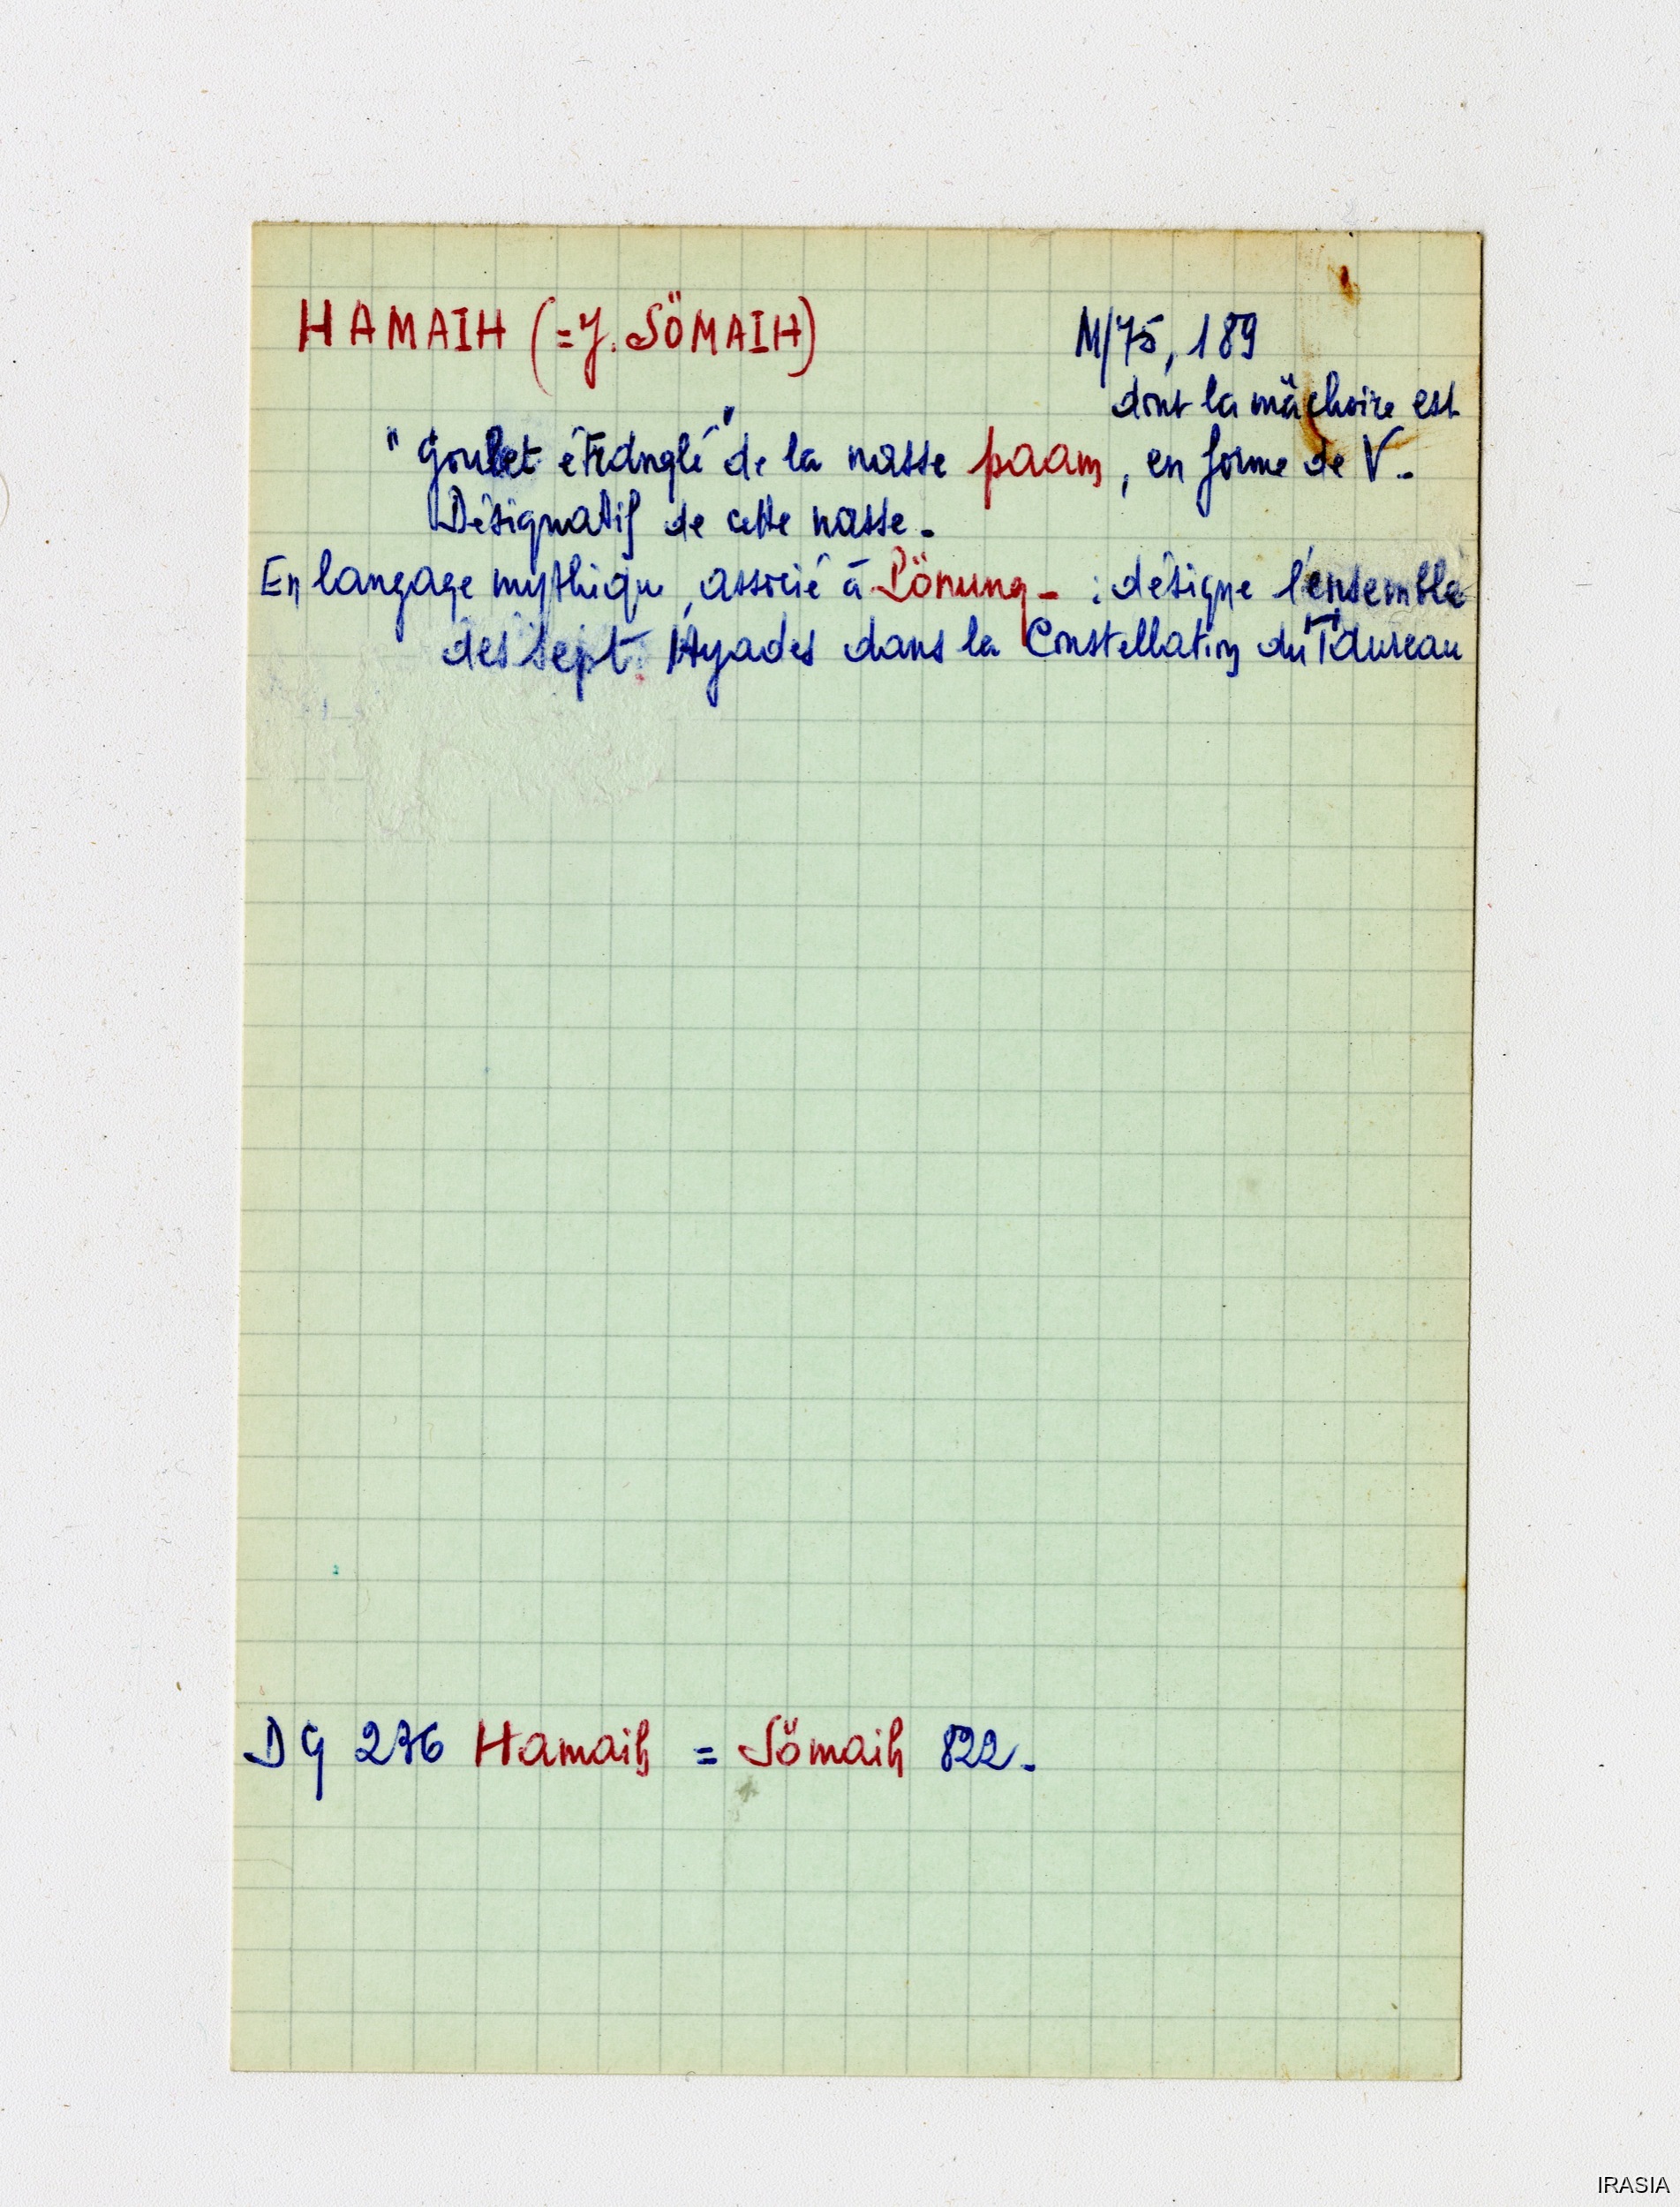 HAMAIH (= J. SÖMAIH) M/75, 189
dont la mâchoire est
"Goulet étranglé" de la nasse paam, en forme de V.
Désignatif de cette nasse.
En langage mythique, associé à Lönung - : désigne l'ensemble
des sept Hyades dans la Constellation du Taureau
DG 276 Hamaih = Sömaih 822.
IRASIA